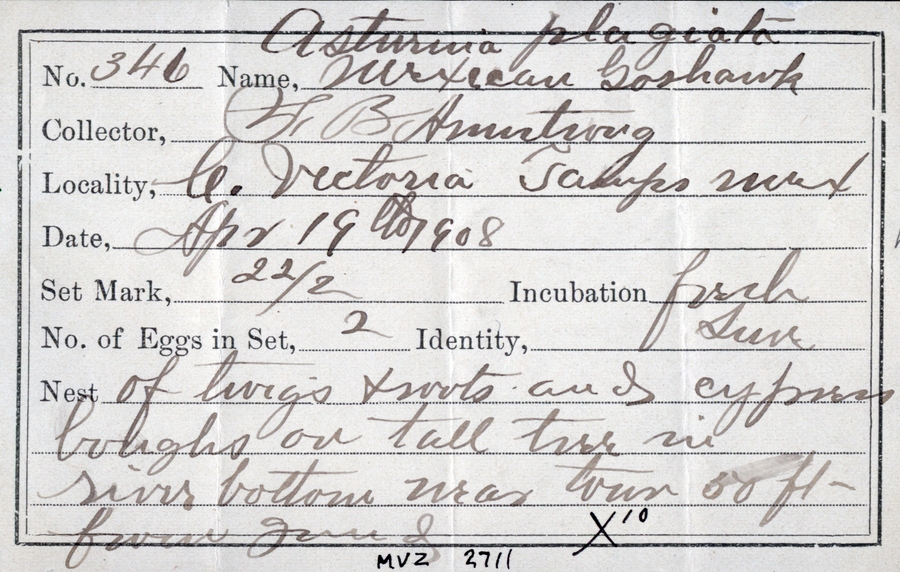 Asturnia plagiata
No. 346 Name, Mexican Goshawk
Collector, F B Armstrong
Locality, C. Victoria Tamps Mex
Date, Apr 19th 1908
Set Mark, 22/2 Incubation fresh
No. of Eggs in Set, 2 Identity, Sure
Nest of twigs & roots and cypress
boughs on tall tree in
river bottom near town 50 ft-
from
X10
MVZ 2711